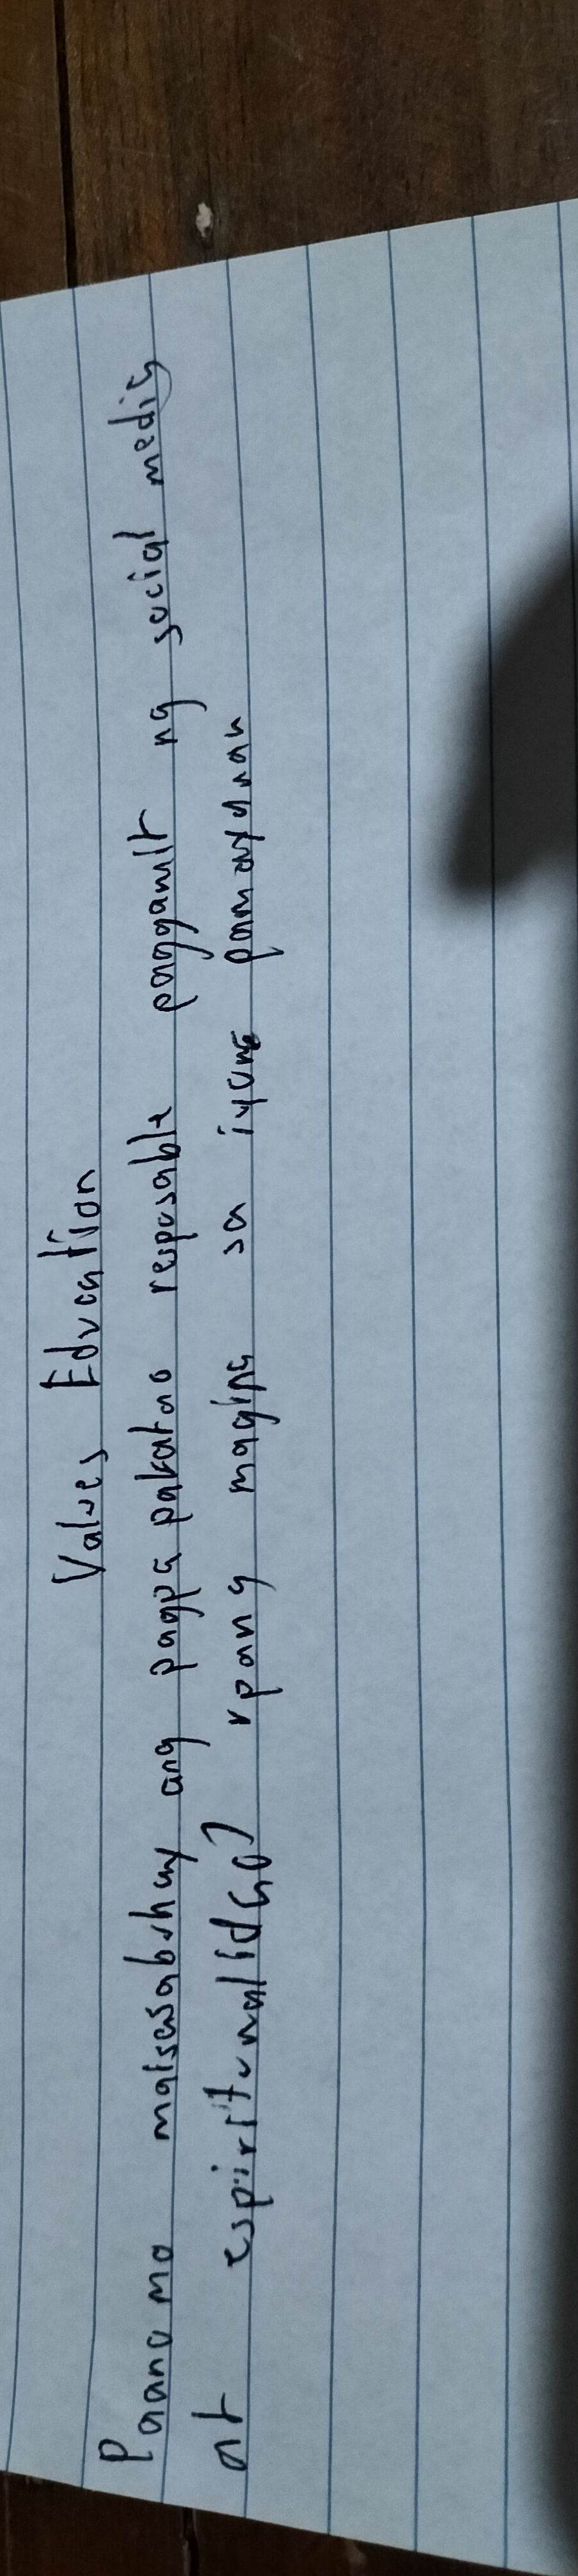 Values Education
Paano mo maisasabuhay ang pagpa pakatao resposable paggamit ng social media
at espiritwalidad? upang maging sa iyong pamayanan